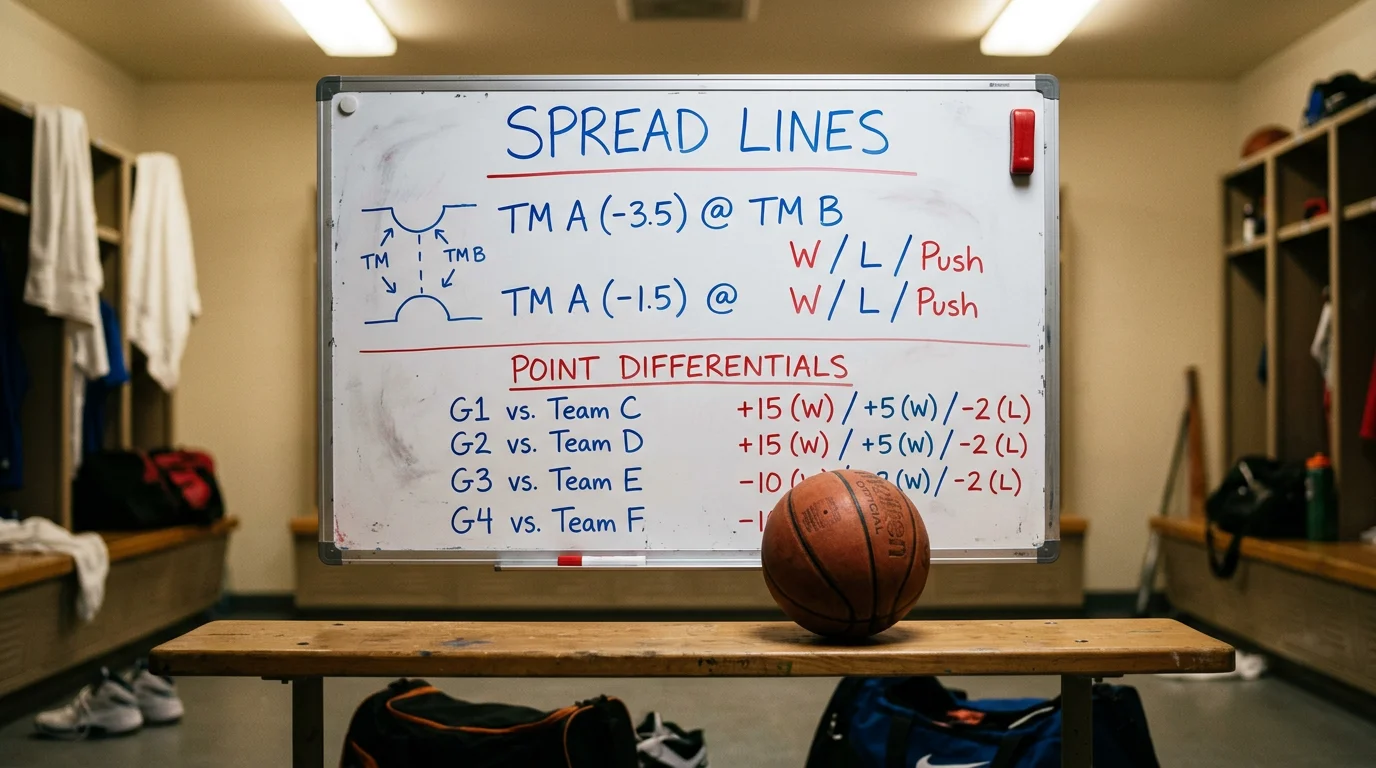 SPREAD LINES
TM A (-3.5) @ TM B
W / L / Push
TM
TM B
TM A (-1.5) @ W / L / Push
POINT DIFFERENTIALS
G1 vs. Team C +15 (W) / +5 (W) / -2 (L)
G2 vs. Team D +15 (W) / +5 (W) / -2 (L)
G3 vs. Team E -10 (W) / -2 (L)
G4 vs. Team F
OFFICIAL